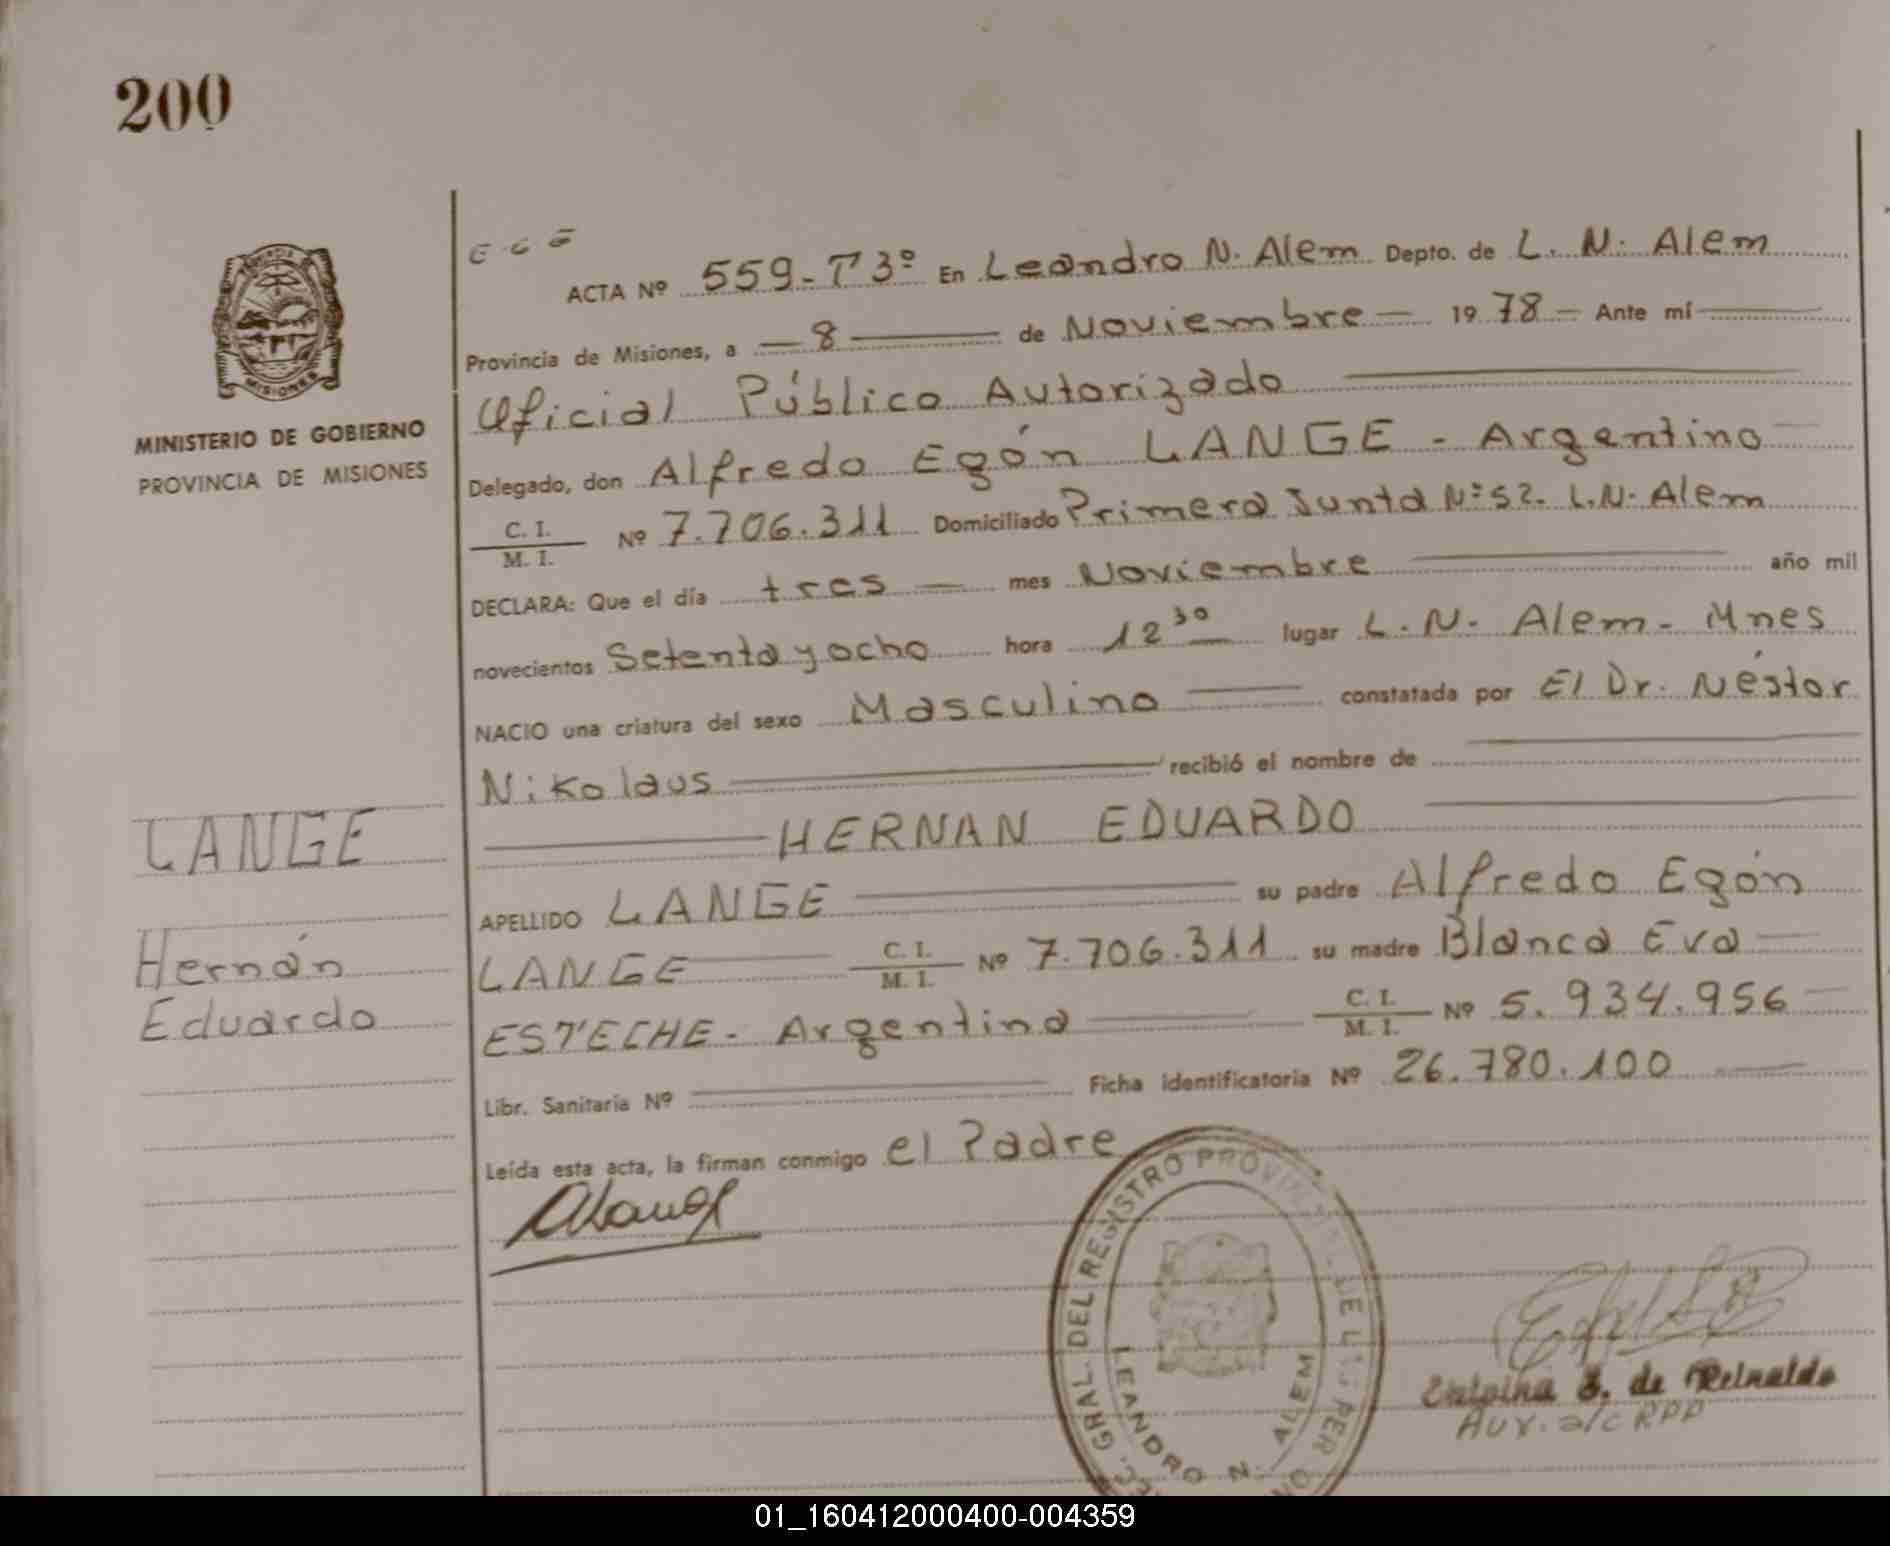 200
MINISTERIO DE GOBIERNO
PROVINCIA DE MISIONES
LANGE
Hernán
Eduardo
ACTA Nº 559-T3º En Leandro N. Alem Depto. de L. N. Alem
Provincia de Misiones, a 8 de Noviembre 1978 Ante mí
Oficial Público Autorizado
Delegado, don Alfredo Egón LANGE - Argentino
C. I.
M. I. Nº 7.706.311 Domiciliado Primera Junta Nº 52. L.N. Alem
DECLARA: Que el día tres mes Noviembre año mil
novecientos Setenta y ocho hora 12 30 lugar L. N. Alem - Mnes
NACIO una criatura del sexo Masculino constatada por El Dr. Néstor
Nikolaus recibió el nombre de
HERNAN EDUARDO
APELLIDO LANGE su padre Alfredo Egón
LANGE C. I. M. I. Nº 7.706.311 su madre Blanca Eva
ESTECHE - Argentina C. I. M. I. Nº 5.934.956
Libr. Sanitaria Nº Ficha identificatoria Nº 26.780.100
Leída esta acta, la firman conmigo el Padre
GRAL DEL REGISTRO PROVINCIAL DE LAS PER
LEANDRO N. ALEM
de Reinaldo
Aux. a/c RPP
01_160412000400-004359